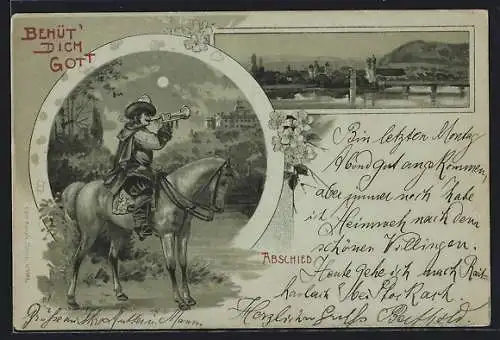 BEHÜT'
DICH
GOTT
ABSCHIED
Bin letzten Montag
Abend gut angekommen,
aber immer noch habe
ich Heimweh nach dem
schönen Villingen.
Heute gehe ich nach
bei Stockach.
Herzlichen Gruß Berthold.
Grüße an